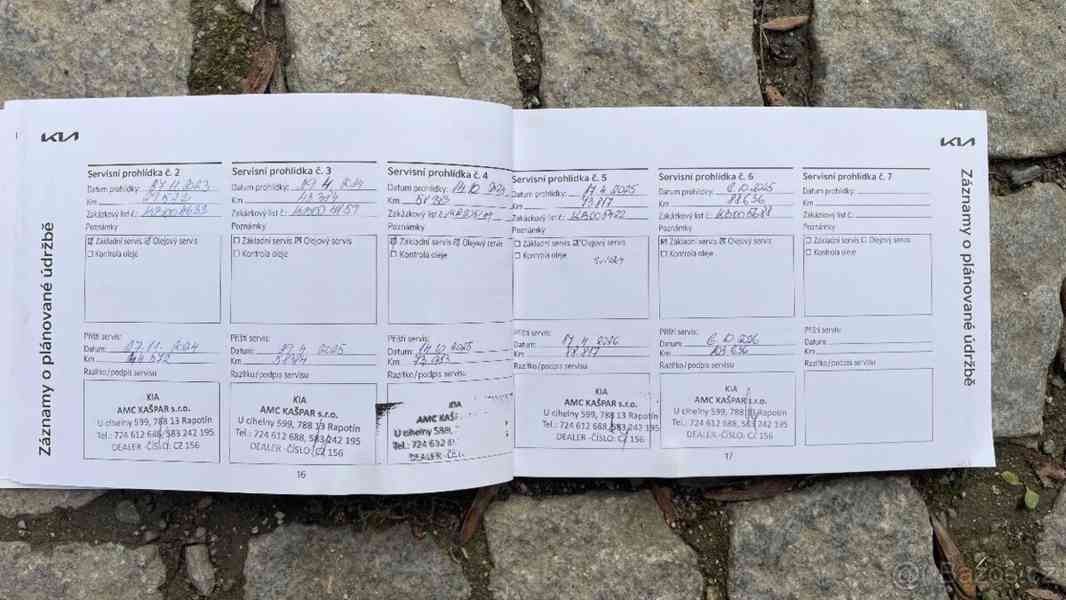 KIA
Záznamy o plánované údržbě
Servisní prohlídka č. 2
Datum prohlídky: 27.11.2023
Km
Zakázkový list č.:
Poznámky
Základní servis Olejový servis
Kontrola oleje
Příští servis:
Datum: 27.11. 2024
Km
Razítko/podpis servisu
KIA
AMC KAŠPAR s.r.o.
U cihelny 599, 788 13 Rapotín
Tel.: 724 612 688, 583 242 195
DEALER -ČÍSLO: CZ 156
Servisní prohlídka č. 3
Datum prohlídky: 4. 2024
Km
Zakázkový list č.:
Poznámky
Základní servis Olejový servis
Kontrola oleje
Příští servis:
Datum: 4. 2025
Km
Razítko/podpis servisu
KIA
AMC KAŠPAR s.r.o.
U cihelny 599, 788 13 Rapotín
Tel.: 724 612 688, 583 242 195
DEALER -ČÍSLO: CZ 156
16
Servisní prohlídka č. 4
Datum prohlídky: 14.10. 2024
Km
Zakázkový list č.:
Poznámky
Základní servis Olejový servis
Kontrola oleje
Příští servis:
Datum: 14.10. 2025
Km
Razítko/podpis servisu
KIA
AMC KAŠPAR
U cihelny 599,
Tel.: 724 612
DEALER -ČÍ
Servisní prohlídka č. 5
Datum prohlídky: 17.4. 2025
Km 73.817
Zakázkový list č.:
Poznámky
Základní servis Olejový servis
Kontrola oleje
Příští servis:
Datum: 17.4. 2026
Km 88.817
Razítko/podpis servisu
KIA
AMC KAŠPAR s.r.o.
U cihelny 599, 788 13 Rapotín
Tel.: 724 612 688, 583 242 195
DEALER -ČÍSLO: CZ 156
Servisní prohlídka č. 6
Datum prohlídky: 2025
Km 88.636
Zakázkový list č.:
Poznámky
Základní servis Olejový servis
Kontrola oleje
Příští servis:
Datum:
Km 103.636
Razítko/podpis servisu
KIA
AMC KAŠPAR s.r.o.
U cihelny 599, 788 13 Rapotín
Tel.: 724 612 688, 583 242 195
DEALER -ČÍSLO: CZ 156
17
Servisní prohlídka č. 7
Datum prohlídky:
Km
Zakázkový list č.:
Poznámky
Základní servis Olejový servis
Kontrola oleje
Příští servis:
Datum:
Km
Razítko/podpis servisu
KIA
Záznamy o plánované údržbě
Bazos.cz